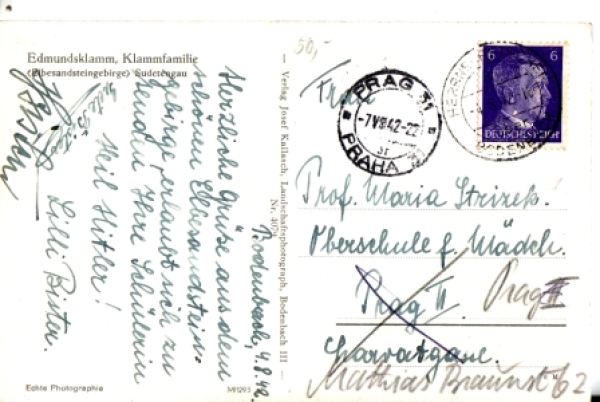 Edmundsklamm, Klammfamilie
(Elbesandsteingebirge) Sudetengau
Bodenbach, 4.8.42.
Herzliche Grüße aus dem
schönen Elbesandstein-
gebirge, erlaubt sich zu
senden Ihre Schülerin
Heil Hitler!
Lilli Bisten.
— Verlag Josef Kallasch, Landschaftsphotograph, Bodenbach III —
Nr. 407a
Echte Photographie
MH293
50,-
PRAG 31
-7.VIII.42-22
31
PRAHA 31
BODENB
6 6
DEUTSCHES REICH
Frau
Prof. Maria Strizek!
Oberschule f. Mädch.
Prag II. Prag III
Charvatgasse.
Mathias Braunst 62